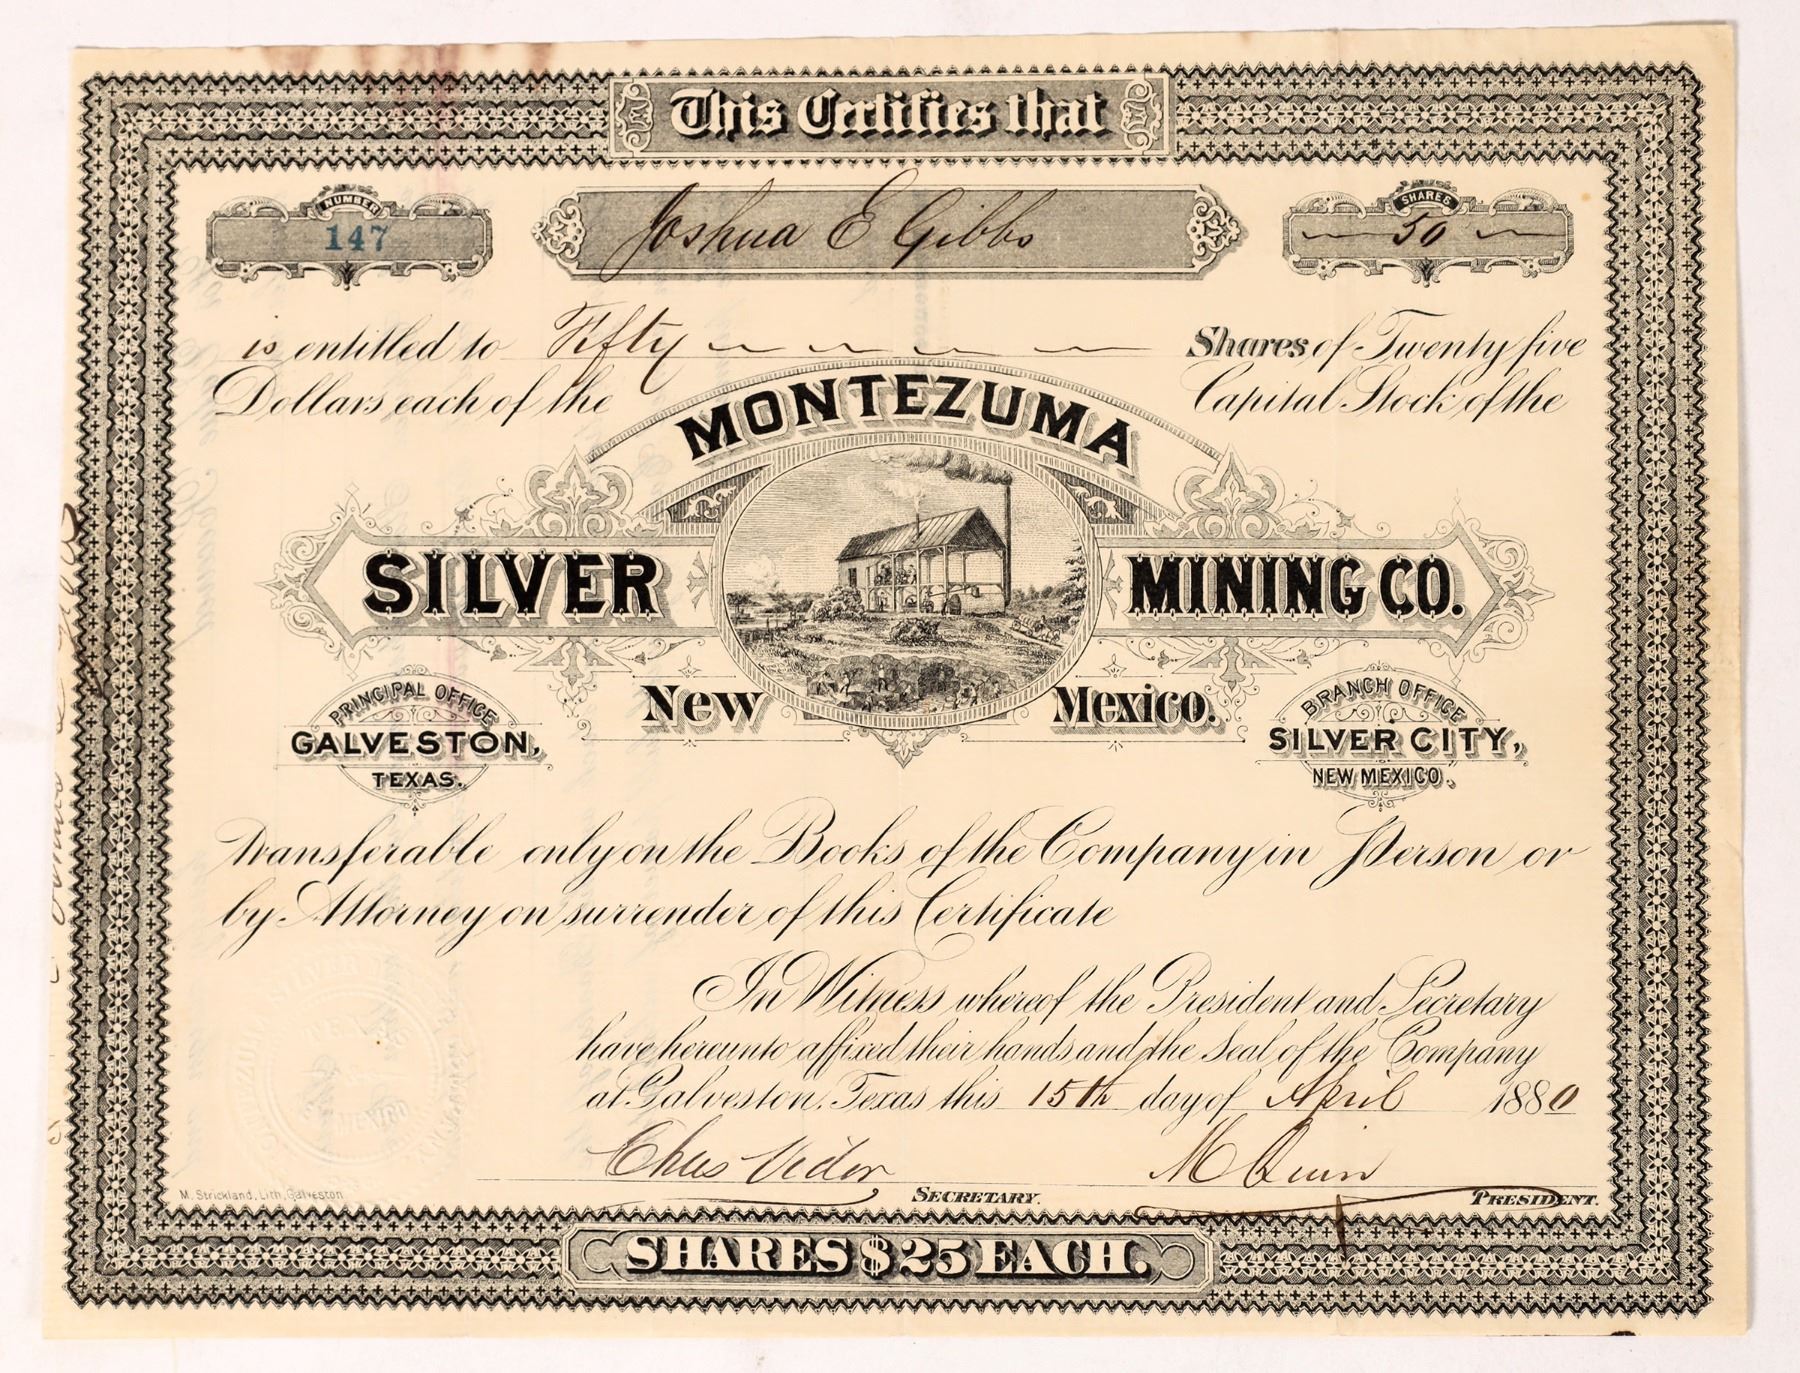 This Certifies that
NUMBER
147
Joshua E Gibbs
SHARES
50
is entitled to Fifty Shares of Twenty five
Dollars each of the Capital Stock of the
MONTEZUMA
SILVER MINING CO.
New Mexico.
PRINCIPAL OFFICE
GALVESTON,
TEXAS.
BRANCH OFFICE
SILVER CITY,
NEW MEXICO.
Transferable only on the Books of the Company in Person or
by Attorney on surrender of this Certificate
In Witness whereof the President and Secretary
have hereunto affixed their hands and the Seal of the Company
at Galveston, Texas this 15th day of April 1880
Chas Vidor SECRETARY.
M Quin PRESIDENT.
M. Strickland, Lith, Galveston
SHARES $25 EACH.